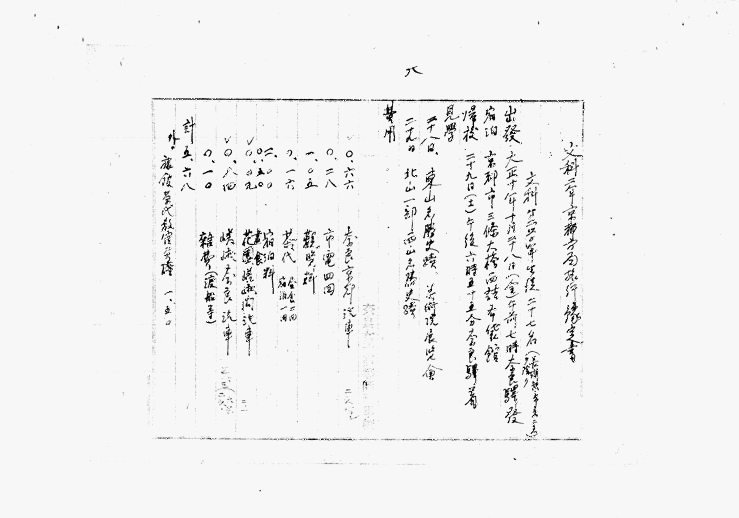 文科二年京都方面旅行豫定書
文科第二学年生徒二十七名
出發 大正十年十月廿八日(金)午前七時大奈良驛發
宿泊 京都市三條大橋西詰 布袋館
歸校 二十九日(土)午後六時五十五分奈良驛着
見學
二十八日、東山名勝史蹟 美術院展覽會
二十九日 北山一部、西山名勝史蹟
費用
〇.六六 奈良京都汽車
〇.二八 市電四回
一.〇五 觀覽料
〇.一六 茶代
二.〇〇 宿泊料
〇.五〇 晝食
〇.〇九 花園嵯峨間汽車
〇.八四 嵯峨奈良汽車
〇.一〇 雜費(渡船等)
計 五.六八
外、旅館茶代教官
一.五〇